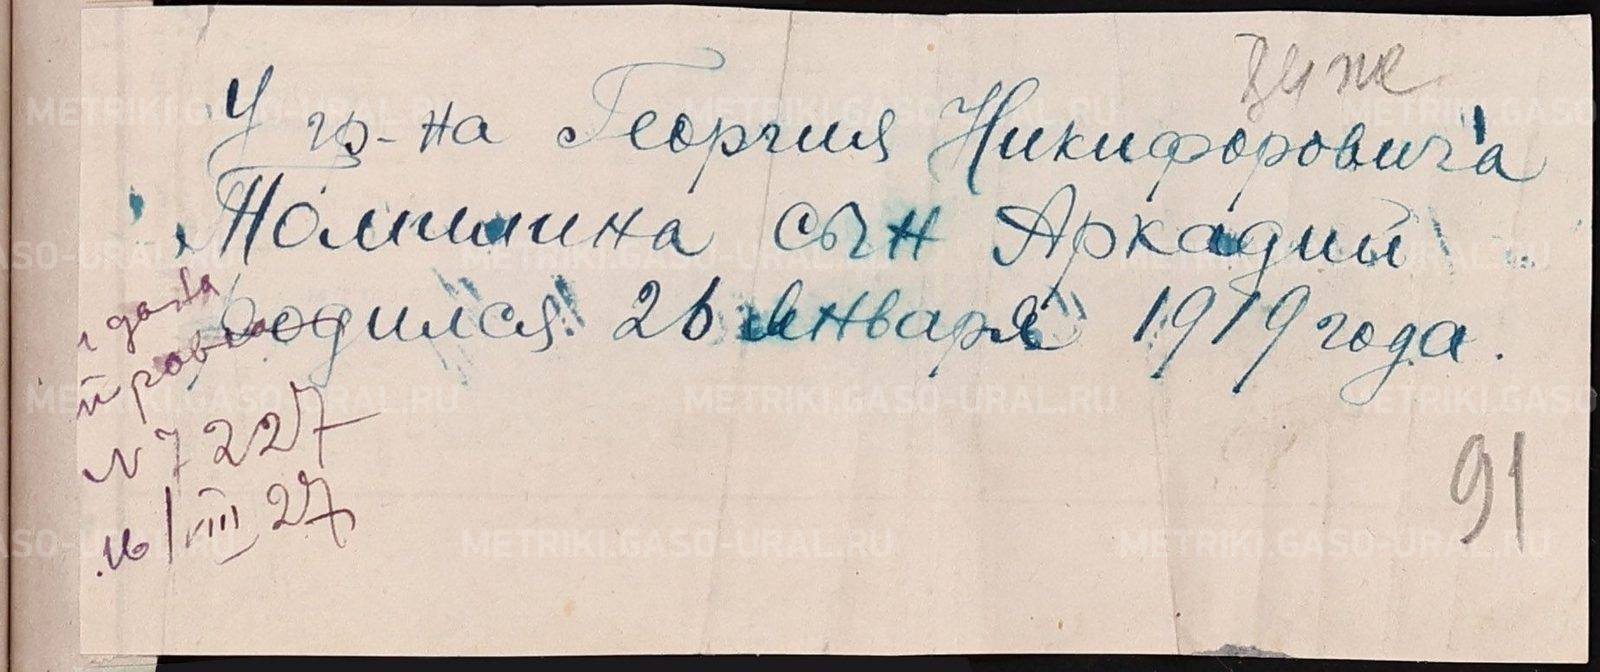 У гр-на Георгия Никифоровича
Томилина сын Аркадий
родился 26 января 1919 года.
N 7227
16/VIII 27
91
METRIKI.GASO-URAL.RU